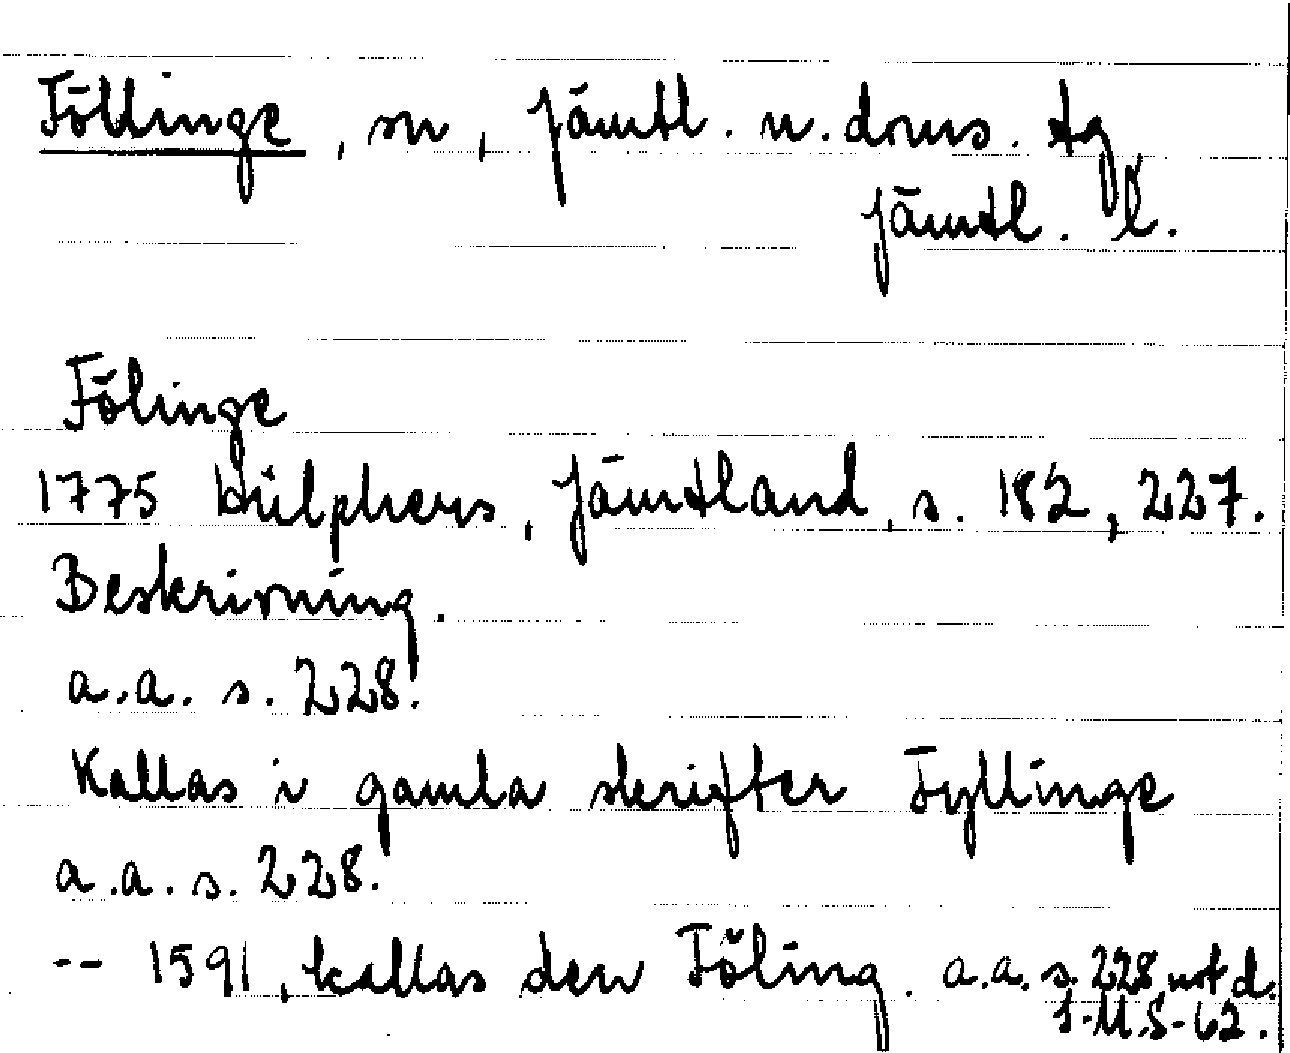 Föllinge, sn, Jämtl. n. doms. tg
Jämtl. l.
Fölinge
1775 Hülphers, Jämtland, s. 182, 227.
Beskrivning.
a.a. s. 228.
Kallas i gamla skrifter Fyllinge
a.a. s. 228.
-- 1591, kallas den Föling. a.a. s. 228, not d.
I.M.S-62.